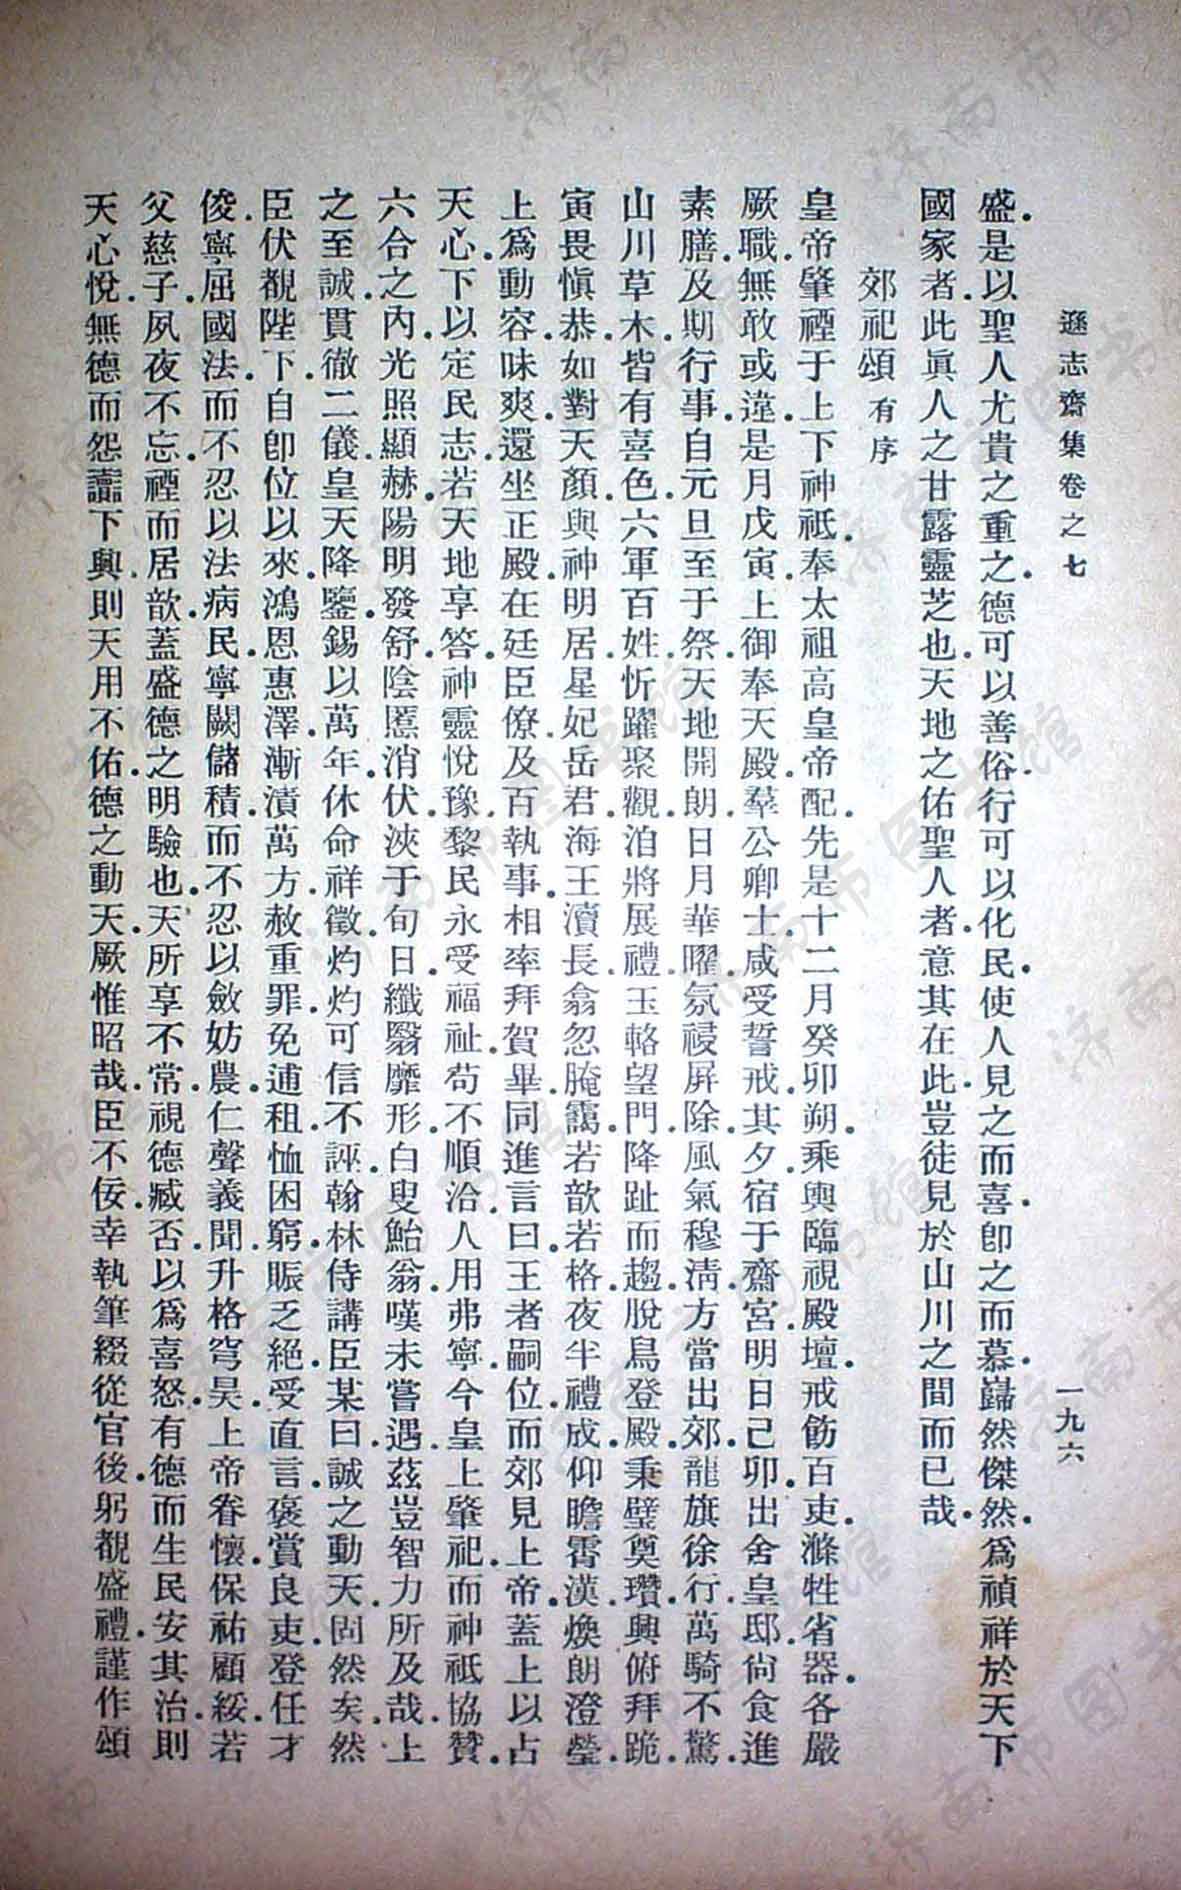 遜志齋集卷之七
一九六
盛是以聖人尤貴之重之德可以善俗行可以化民使人見之而喜卽之而慕巋然傑然爲禎祥於天下
國家者此眞人之甘露靈芝也天地之佑聖人者意其在此豈徒見於山川之間而已哉
郊祀頌有序
皇帝肇禋于上下神祇奉太祖高皇帝配先是十二月癸卯朔乘輿臨視殿壇戒飭百吏滌牲省器各嚴
厥職無敢或違是月戊寅上御奉天殿羣公卿士咸受誓戒其夕宿于齋宮明日己卯出舍皇邸尙食進
素膳及期行事自元旦至于祭天地開朗日月華曜氛祲屏除風氣穆淸方當出郊龍旗徐行萬騎不驚
山川草木皆有喜色六軍百姓忻躍聚觀洎將展禮玉輅望門降趾而趨脫舄登殿秉璧奠瓚興俯拜跪
寅畏愼恭如對天顏與神明居星妃岳君海王瀆長翕忽腌靄若歆若格夜半禮成仰瞻霄漢煥朗澄瑩
上爲動容味爽還坐正殿在廷臣僚及百執事相率拜賀畢同進言曰王者嗣位而郊見上帝蓋上以占
天心下以定民志若天地享答神靈悅豫黎民永受福祉苟不順洽人用弗寧今皇上肇祀而神祇協贊
六合之內光照顯赫陽明發舒陰慝消伏浹于旬日纖翳靡形白叟鮐翁嘆未嘗遇茲豈智力所及哉上
之至誠貫徹二儀皇天降鑒錫以萬年休命祥徵灼灼可信不誣翰林侍講臣某曰誠之動天固然矣然
臣伏覩陛下自卽位以來鴻恩惠澤漸漬萬方赦重罪免逋租恤困窮賑乏絕受直言褒賞良吏登任才
俊寧屈國法而不忍以法病民寧闕儲積而不忍以斂妨農仁聲義聞升格穹昊上帝眷懷保祐顧綏若
父慈子夙夜不忘禋而居歆蓋盛德之明驗也天所享不常視德臧否以爲喜怒有德而生民安其治則
天心悅無德而怨讟下興則天用不佑德之動天厥惟昭哉臣不佞幸執筆綴從官後躬覩盛禮謹作頌